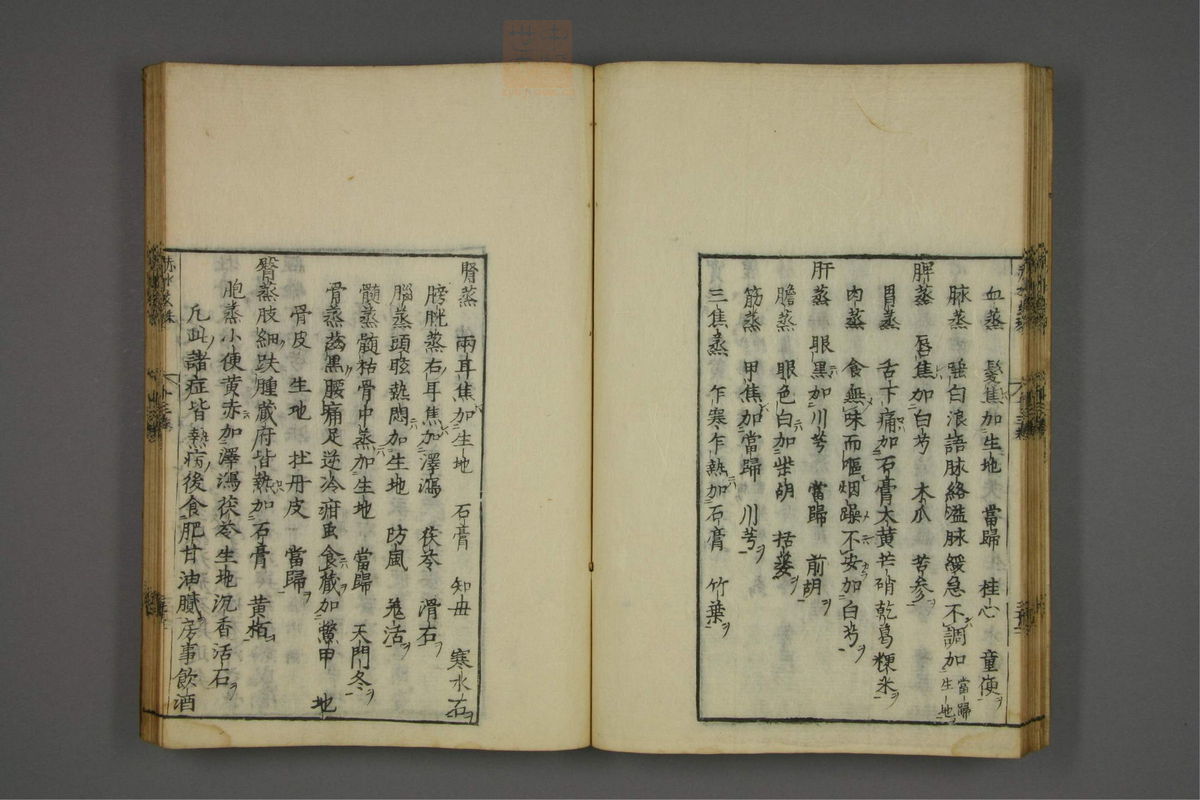 血蒸 髮焦加生地 當歸 桂心 童便ヲ
脉蒸 唾白浪語脉絡溢脉緩急不調加 當歸 生地ヲ
脾蒸 唇焦加白芍 木瓜 苦参ヲ
胃蒸 舌下痛加石膏大黄芒硝乾葛粳米ヲ
肉蒸 食無味而嘔烟躁不安加白芍ヲ
肝蒸 眼黒加川芎 當歸 前胡ヲ
膽蒸 眼色白加柴胡 括蔞ヲ
筋蒸 甲焦加當歸 川芎ヲ
三焦蒸 乍寒乍熱加石膏 竹葉ヲ
腎蒸 兩耳焦加生地 石膏 知母 寒水石ヲ
膀胱蒸右耳焦加澤瀉 茯苓 滑石ヲ
腦蒸頭眩熱悶加生地 防風 羗活ヲ
髓蒸髓枯骨中蒸加生地 當歸 天門冬ヲ
骨蒸齒黒腰痛足逆冷疳虫食蔵加鱉甲 地
骨皮 生地 牡丹皮 當歸ヲ
臀蒸肢細趺腫蔵府皆熱加石膏 黄栢ヲ
胞蒸小便黄赤加澤瀉茯苓生地沉香滑石ヲ
凡此諸症皆熱病後食肥甘油膩房事飲酒
赤水玄珠